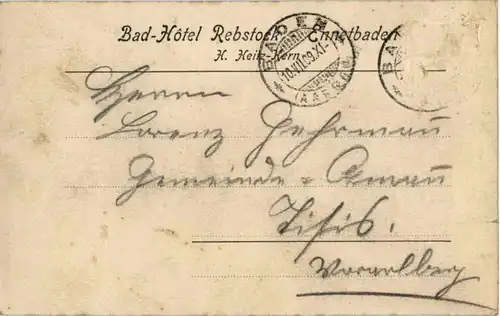 Bad-Hôtel Rebstock Ennetbaden
H. Heitz-Kern
BADEN
10.VII.09.XI-
(AARGAU)
BA
Herrn
Lorenz Gehrmau
Gemeinde-Amau
Tisis.
Vorarlberg